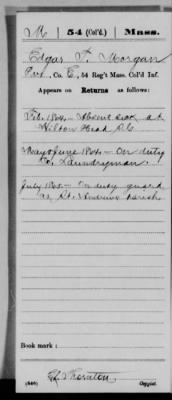 M 54 (Col'd.) Mass.
Edgar F. Morgan
Pvt, Co. E, 54 Reg't Mass. Col'd Inf.
Appears on Returns as follows:
Feb. 1864 - Absent sick at
Hilton Head S.C.
May & June 1864 - On duty
Co. Laundryman.
July 1864 - On duty guard
at St. Andrews Parish
Book mark:
Thornton
(546) Copyist.